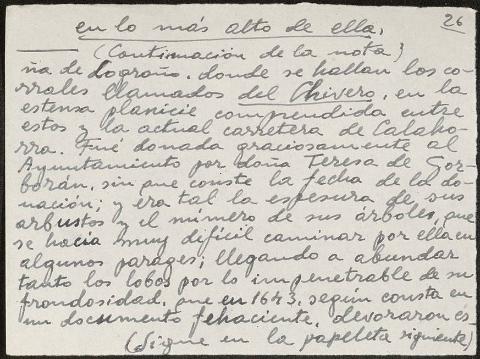 26
en lo más alto de ella.
(Continuación de la nota)
ña de Logroño, donde se hallan los co-
rrales llamados del Chivero, en la
estensa planicie comprendida entre
estos y la actual carretera de Calaho-
rra. Fué donada graciosamente al
Ayuntamiento por doña Teresa de Gor-
borán, sin que conste la fecha de la do-
nación; y era tal la espesura de sus
arbustos y el número de sus árboles, que
se hacía muy difícil caminar por ella en
algunos parages; llegando a abundar
tanto los lobos por lo impenetrable de su
frondosidad, que en 1643, según consta en
un documento fehaciente, devoraron es-
(Sigue en la papeleta siguiente)